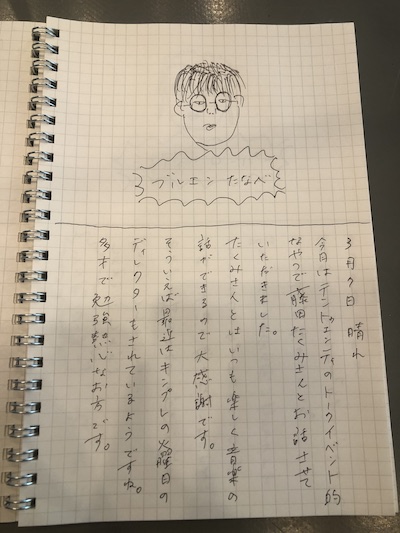 ブルエン たなべ
3月7日 晴れ
今日はテントゥエンティのトークイベント的
なやつで藤田たくみさんとお話させて
いただきました。
たくみさんとはいつも楽しく音楽の
話ができるので大感謝です。
そういえば最近はキンプレの火曜日の
ディレクターもされているようですね。
多才で勉強熱心なお方です。